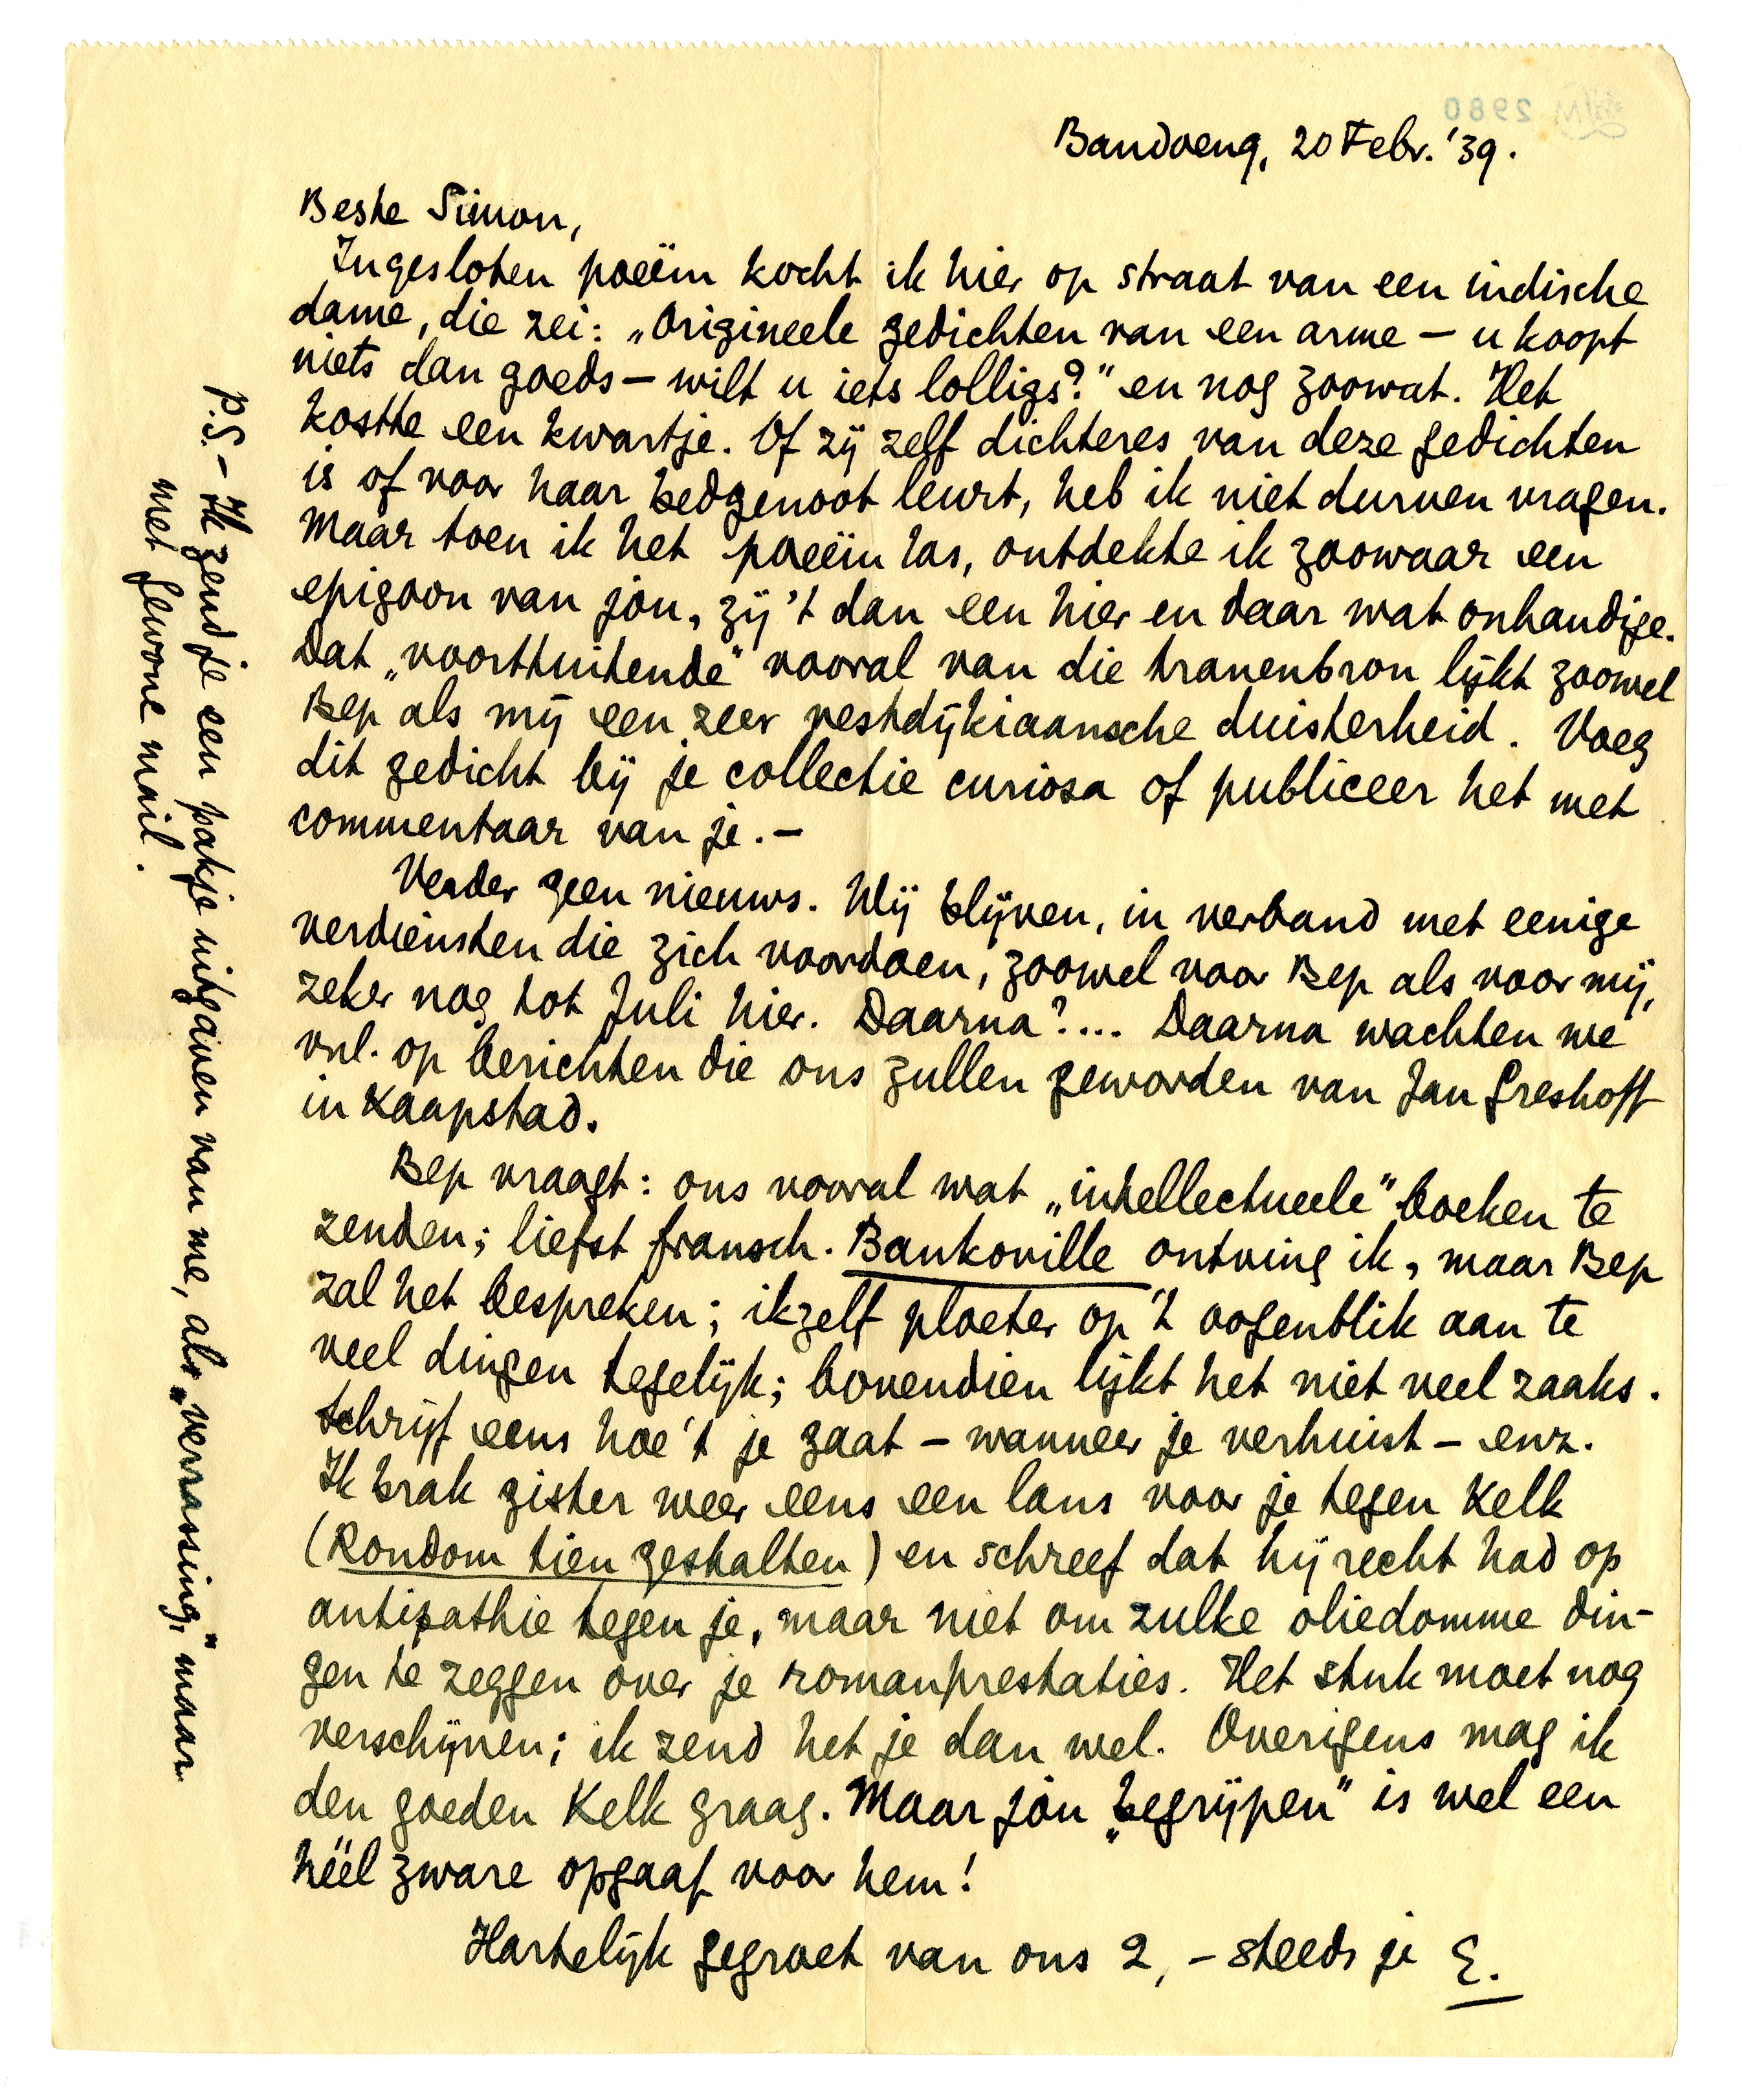 Bandoeng, 20 Febr. '39.
Beste Simon,
Ingesloten poëem kocht ik hier op straat van een indische
dame, die zei: „Origineele gedichten van een arme — u koopt
niets dan goeds — wilt u iets lolligs?" en nog zoowat. Het
kostte een kwartje. Of zij zelf dichteres van deze gedichten
is of voor haar bedgenoot leurt, heb ik niet durven vragen.
Maar toen ik het poëem las, ontdekte ik zoowaar een
epigoon van jòu, zij 't dan een hier en daar wat onhandige.
Dat „voorttuitende" vooral van die tranenbron lijkt zoowel
Bep als mij een zeer vestdijkiaansche duisterheid. Voeg
dit gedicht bij je collectie curiosa of publiceer het met
commentaar van je. —
Verder geen nieuws. Wij blijven, in verband met eenige
verdiensten die zich voordoen, zoowel voor Bep als voor mij,
zeker nog tot Juli hier. Daarna?... Daarna wachten we
vnl. op berichten die ons zullen geworden van Jan Greshoff
in Kaapstad.
Bep vraagt: ons vooral wat „intellectueele" boeken te
zenden; liefst fransch. Bankoville ontving ik, maar Bep
zal het bespreken; ikzelf ploeter op 't oogenblik aan te
veel dingen tegelijk; bovendien lijkt het niet veel zaaks.
Schrijf eens hoe 't je gaat — wanneer je verhuist — enz.
Ik brak gister weer eens een lans voor je tegen Kelk
(Rondom tien gestalten) en schreef dat hij recht had op
antipathie tegen je, maar niet om zulke oliedomme din-
gen te zeggen over je romanprestaties. Het stuk moet nog
verschijnen; ik zend het je dan wel. Overigens mag ik
den goeden Kelk graag. Maar jòu „begrijpen" is wel een
héél zware opgaaf voor hem!
Hartelijk gegroet van ons 2, — steeds je E.
P.S. — Ik zend je een pakje uitgaven van me, als „verrassing," maar
met gewone mail.
2980